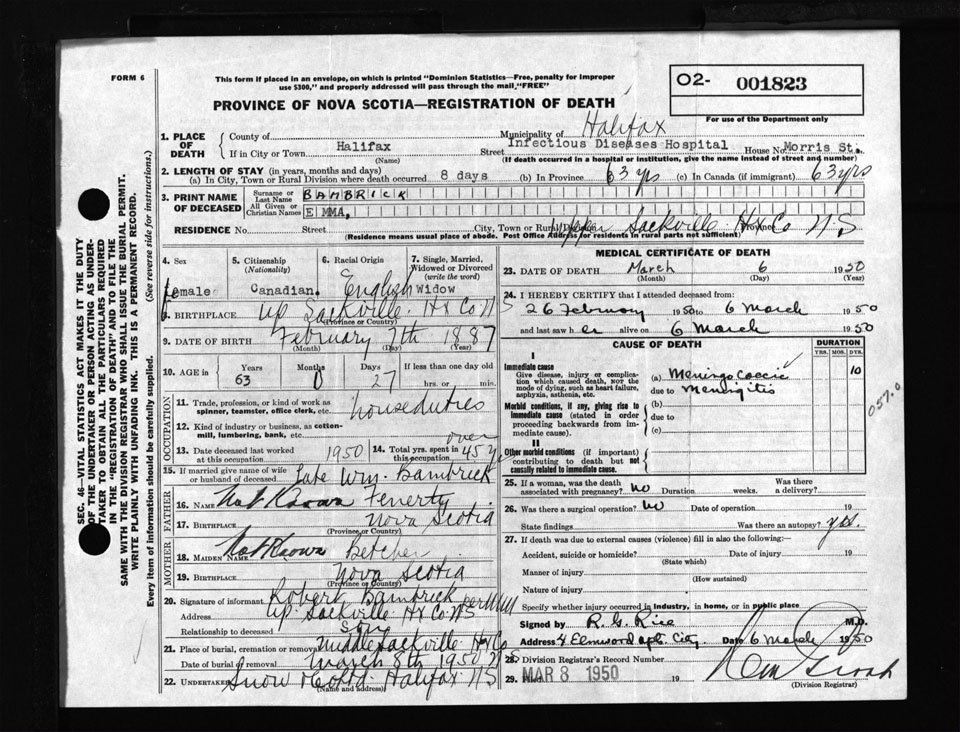 FORM 6
This form if placed in an envelope, on which is printed "Dominion Statistics—Free, penalty for improper
use $300," and properly addressed will pass through the mail "FREE"
PROVINCE OF NOVA SCOTIA—REGISTRATION OF DEATH
O2- 001823
For use of the Department only
SEC. 46—VITAL STATISTICS ACT MAKES IT THE DUTY
OF THE UNDERTAKER OR PERSON ACTING AS UNDER-
TAKER TO OBTAIN ALL THE PARTICULARS REQUIRED
IN THE "REGISTRATION OF DEATH" AND TO FILE THE
SAME WITH THE DIVISION REGISTRAR WHO SHALL ISSUE THE BURIAL PERMIT.
WRITE PLAINLY WITH UNFADING INK. THIS IS A PERMANENT RECORD.
Every item of information should be carefully supplied. (See reverse side for instructions.)
1. PLACE OF DEATH
County of Municipality of Halifax
If in City or Town Halifax Street Infectious Diseases Hospital House No Morris St.
(Name) (If death occurred in a hospital or institution, give the name instead of street and number)
2. LENGTH OF STAY (in years, months and days)
(a) In City, Town or Rural Division where death occurred 8 days (b) In Province 63 yrs (c) In Canada (if immigrant) 63 yrs
3. PRINT NAME OF DECEASED
Surname or Last Name BAMBRICK
All Given or Christian Names EMMA,
RESIDENCE No. Street City, Town or Rural Div. Upper Sackville Hx Co Province N S
(Residence means usual place of abode. Post Office Address for residents in rural parts not sufficient)
4. Sex female
5. Citizenship (Nationality) Canadian.
6. Racial Origin English
7. Single, Married, Widowed or Divorced (write the word) Widow
8. BIRTHPLACE Up Sackville Hx Co NS
(Province or Country)
9. DATE OF BIRTH February 7th 1887
(Month) (Day) (Year)
10. AGE in Years 63 Months 0 Days 27 If less than one day old hrs. or min.
OCCUPATION
11. Trade, profession, or kind of work as
spinner, teamster, office clerk, etc. houseduties
12. Kind of industry or business, as cotton-
mill, lumbering, bank, etc.
13. Date deceased last worked at this occupation 1950
14. Total yrs. spent in this occupation over 45 yrs
15. If married give name of wife
or husband of deceased Late Wm. Bambrick
FATHER
16. Name Not Known Fenerty
17. Birthplace Nova Scotia
(Province or Country)
MOTHER
18. Maiden Name Not Known Betcher
19. Birthplace Nova Scotia
(Province or Country)
20. Signature of informant Robert Bambrick per
Address Up. Sackville Hx Co NS
Relationship to deceased Son
21. Place of burial, cremation or removal Middle Sackville Hx Co
Date of burial or removal March 8th 1950 NS
22. Undertaker Snow & Co Ltd Halifax NS
(Name and address)
MEDICAL CERTIFICATE OF DEATH
23. DATE OF DEATH March 6 1950
(Month) (Day)
24. I HEREBY CERTIFY that I attended deceased from:
26 February 1950 to 6 March 1950
and last saw her alive on 6 March 1950
CAUSE OF DEATH
DURATION
YRS. MOS. DYS.
I
Immediate cause
Give disease, injury or compli-
cation which caused death, NOT the
mode of dying, such as heart failure,
asphyxia, asthenia, etc.
(a) Meningococcic 10
due to Meningitis
057.0
Morbid conditions, if any, giving rise to
immediate cause (stated in order
proceeding backwards from im-
mediate cause).
(b)
due to
(c)
II
Other morbid conditions (if important)
contributing to death but not
causally related to immediate cause.
25. If a woman, was the death
associated with pregnancy? No Duration weeks. Was there a delivery?
26. Was there a surgical operation? No Date of operation 19
State findings Was there an autopsy? yes.
27. If death was due to external causes (violence) fill in also the following:—
Accident, suicide or homicide? Date of injury 19
(State which)
Manner of injury
(How sustained)
Nature of injury
Specify whether injury occurred in industry, in home, or in public place
Signed by R. G. Rice M.D.
Address 4 Elmwood Apt. City Date 6 March 1950
28. Division Registrar's Record Number
29. Filed MAR 8 1950 19
(Division Registrar)